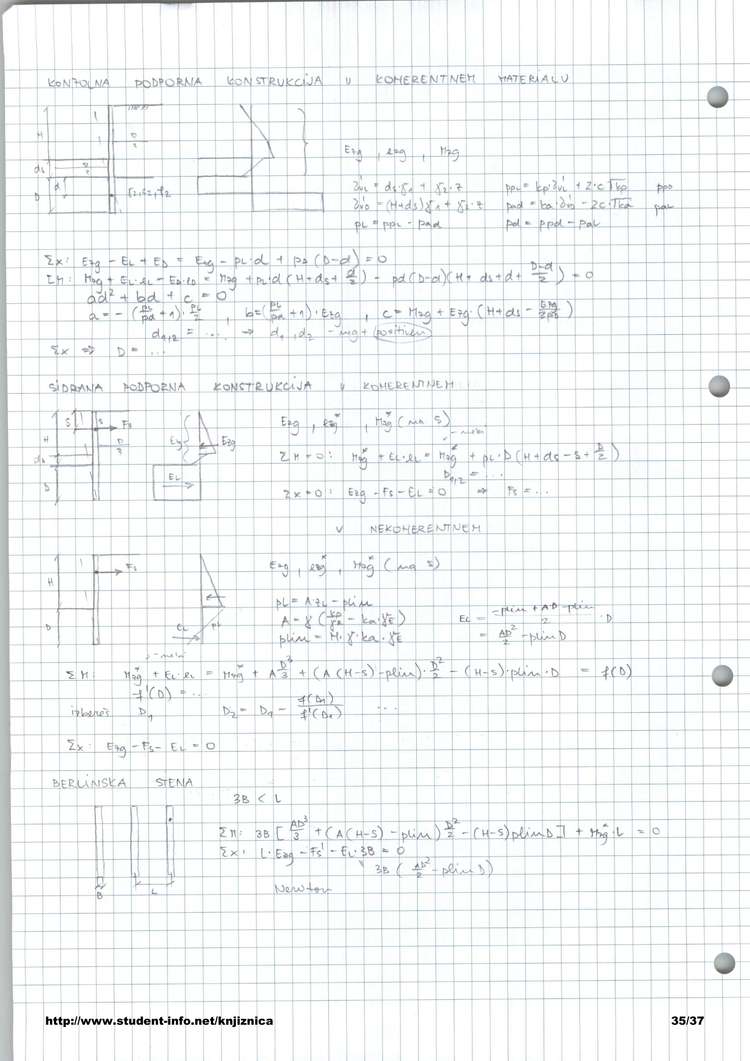 KONZOLNA PODPORNA KONSTRUKCIJA V KOHERENTNEM MATERIALU
H
ds
D
d
Ezg , ezg , Mzg
pL = ppL - pad
pd = ppd - paL
Σx: Ezg - EL + ED = Ezg - pL·d + pD (D-d) = 0
ΣM: Mzg + EL·eL - ED·eD = Mzg + pL·d (H+ds+ d/2) - pd (D-d)(H + ds + d + (D-d)/2) = 0
ad² + bd + c = 0
d1,2 = ... ⇒ d1, d2 - mg+ pozitiven
Σx ⇒ D = ...
SIDRANA PODPORNA KONSTRUKCIJA V KOHERENTNEM
S
Fs
H
ds
D
Ezg
EL
Ezg , ezg* , Mzg* (na S)
ΣM=0: Mzg* + EL·eL = Mzg* + pL·D (H+ds-S+ D/2)
D1,2 = ...
Σx=0: Ezg - Fs - EL = 0 ⇒ Fs = ...
V NEKOHERENTNEM
Fs
H
D
EL
pL
Ezg , ezg* , Mzg* (na S)
pL = A·zL - plim
plim = H·γ·ka·γE
EL = (-plim + AD - plim)/2 · D
= AD²/2 - plim D
ΣM: Mzg* + EL·eL = Mzg* + A D³/3 + (A (H-S) - plim)· D²/2 - (H-S)·plim·D = f(D)
f'(D) = ...
izbereš D1 D2 = D1 - f(D1)/f'(D1) ...
Σx: Ezg - Fs - EL = 0
BERLINSKA STENA
3B < L
ΣM: 3B [ AD³/3 + (A(H-S) - plim) D²/2 - (H-S) plim D ] + Mzg*·L = 0
Σx: L·Ezg - Fs' - EL·3B = 0
3B ( AD²/2 - plim D)
B
L
Newton
http://www.student-info.net/knjiznica
35/37